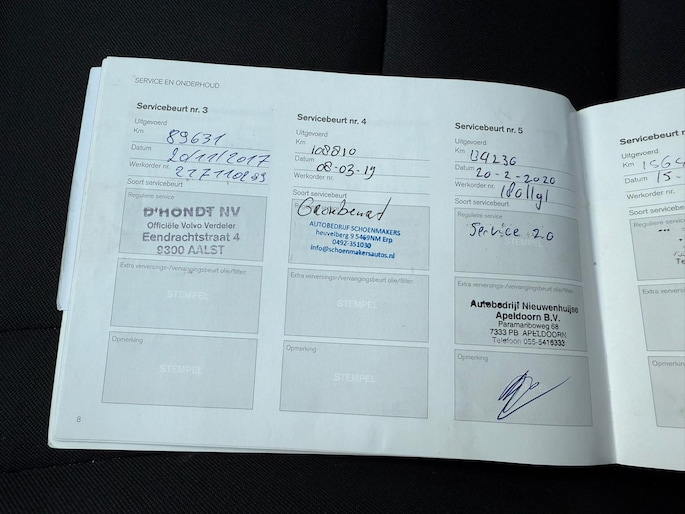 SERVICE EN ONDERHOUD
Servicebeurt nr. 3
Uitgevoerd
Km 89631
Datum 20/11/2017
Werkorder nr.
Soort servicebeurt
Reguliere service
D'HONDT NV
Officiële Volvo Verdeler
Eendrachtstraat 4
9300 AALST
Extra verversings-/vervangingsbeurt olie/filter:
STEMPEL
Opmerking
STEMPEL
8
Servicebeurt nr. 4
Uitgevoerd
Km 108810
Datum 08-03-19
Werkorder nr.
Soort servicebeurt
Reguliere service
Grote beurt
AUTOBEDRIJF SCHOENMAKERS
heuvelberg 9 5469NM Erp
0492-351030
info@schoenmakersautos.nl
Extra verversings-/vervangingsbeurt olie/filter:
STEMPEL
Opmerking
STEMPEL
Servicebeurt nr. 5
Uitgevoerd
Km 134236
Datum 20-2-2020
Werkorder nr.
Soort servicebeurt
Reguliere service
Service 2.0
STEMPEL
Extra verversings-/vervangingsbeurt olie/filter:
Autobedrijf Nieuwenhuijse
Apeldoorn B.V.
Paramariboweg 68
7333 PB APELDOORN
Telefoon 055-5416333
Opmerking
Servicebeurt nr.
Uitgevoerd
Km
Datum 15-
Werkorder nr.
Soort servicebeurt
Reguliere service
Extra verversings-/
Opmerking